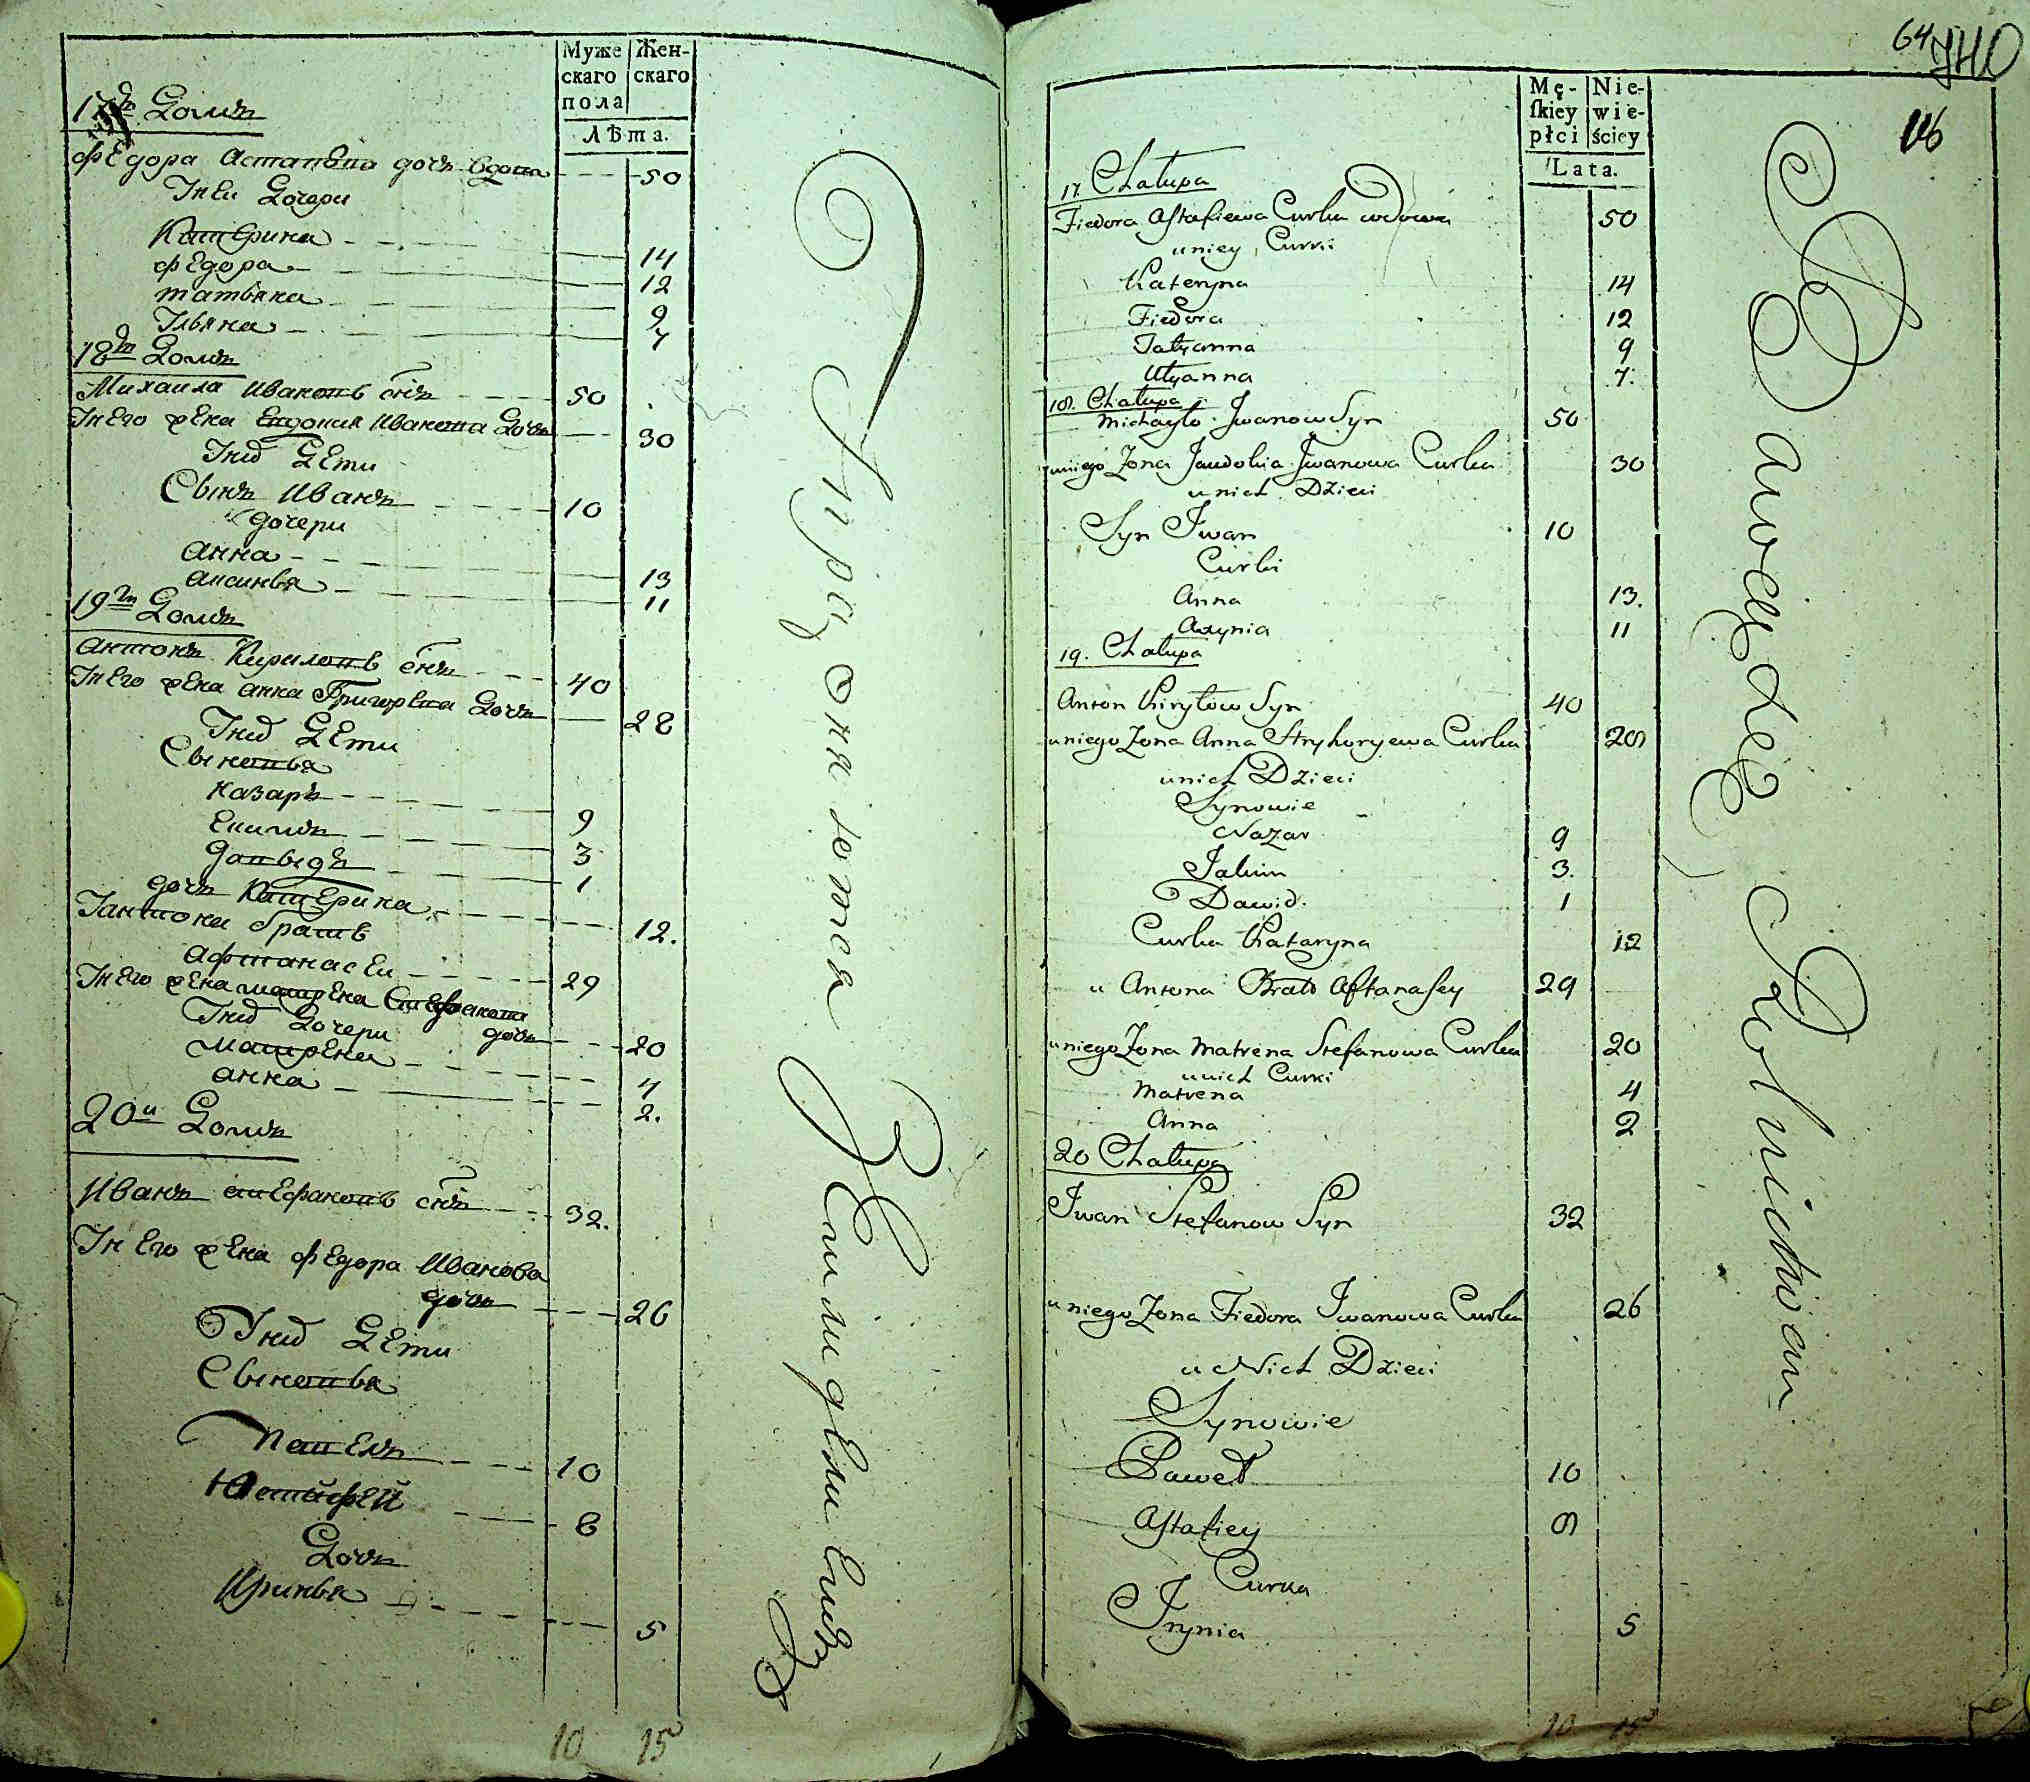 Муже
скаго
пола
Жен-
скаго
Лѣта.
17й Домъ
Федора Астапова дочь вдова 50
Унеи Дочери
Катерина 14
Федора 12
татьяна 9
Ульяна 7
18й Домъ
Михаила Ивановъ снъ 50
Унего жена Евдокия Иванова Дочь 30
Унихъ Дети
Сынъ Иванъ 10
дочери
анна 13
аксинья 11
19й Домъ
антонъ Кириловъ снъ 40
Унего жена анна Григорева Дочь 28
Унихъ Дети
Сыновья
Назаръ 9
Екимъ 3
давыдъ 1
дочь Катерина 12.
Уантона братъ
афтанасеи 29
Унего жена матрена Стефанова
дочь 20
Унихъ Дочери
матрена 4
анна 2.
20и Домъ
Иванъ стефановъ снъ 32.
Унего жена федора Иванова
дочь 26
Унихъ Дети
Сыновья
Павелъ 10
Астафей 8
Дочь
Иринья 5
10 15
Упражняются Земледелиемъ
64
116
Mę-
skiey
płci
Nie-
wie-
ściey
Lata.
17 Chałupa
Fiedora Astafiewa Curka wdowa 50
u niey Curki
Kateryna 14
Fiedora 12
Tatyanna 9
Ulyanna 7.
18. Chałupa
Michayło Jwanow Syn 50
u niego Zona Jawdokia Jwanowa Curka 30
u nich Dzieci
Syn Jwan 10
Curki
Anna 13.
Axynia 11
19. Chałupa
Anton Kiryłow Syn 40
u niego Zona Anna Hryhoryewa Curka 28
u nich Dzieci
Synowie
Nazar 9
Jakim 3.
Dawid. 1
Curka Kataryna 12
u Antona Brato Aftanasey 29
u niego Zona Matrena Stefanowa Curka 20
u nich Curki
Matrena 4
Anna 2
20 Chałupa
Jwan Stefanow Syn 32
u niego Zona Fiedora Jwanowa Curka 26
u Nich Dzieci
Synowie
Paweł 10
Astafiey 8
Curka
Jrynia 5
10 15
Bawią się Rolnictwem